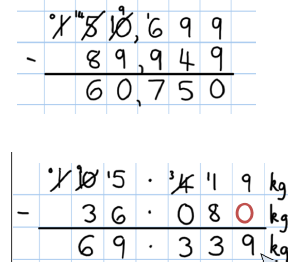 ⁰1̸ ¹⁴5̸ ⁹1̸0̸, ¹6 9 9
- 8 9, 9 4 9
6 0, 7 5 0
⁰1̸ ⁹1̸0̸ ¹5 . ³4̸ ¹1 9 kg
- 3 6 . 0 8 0 kg
6 9 . 3 3 9 kg